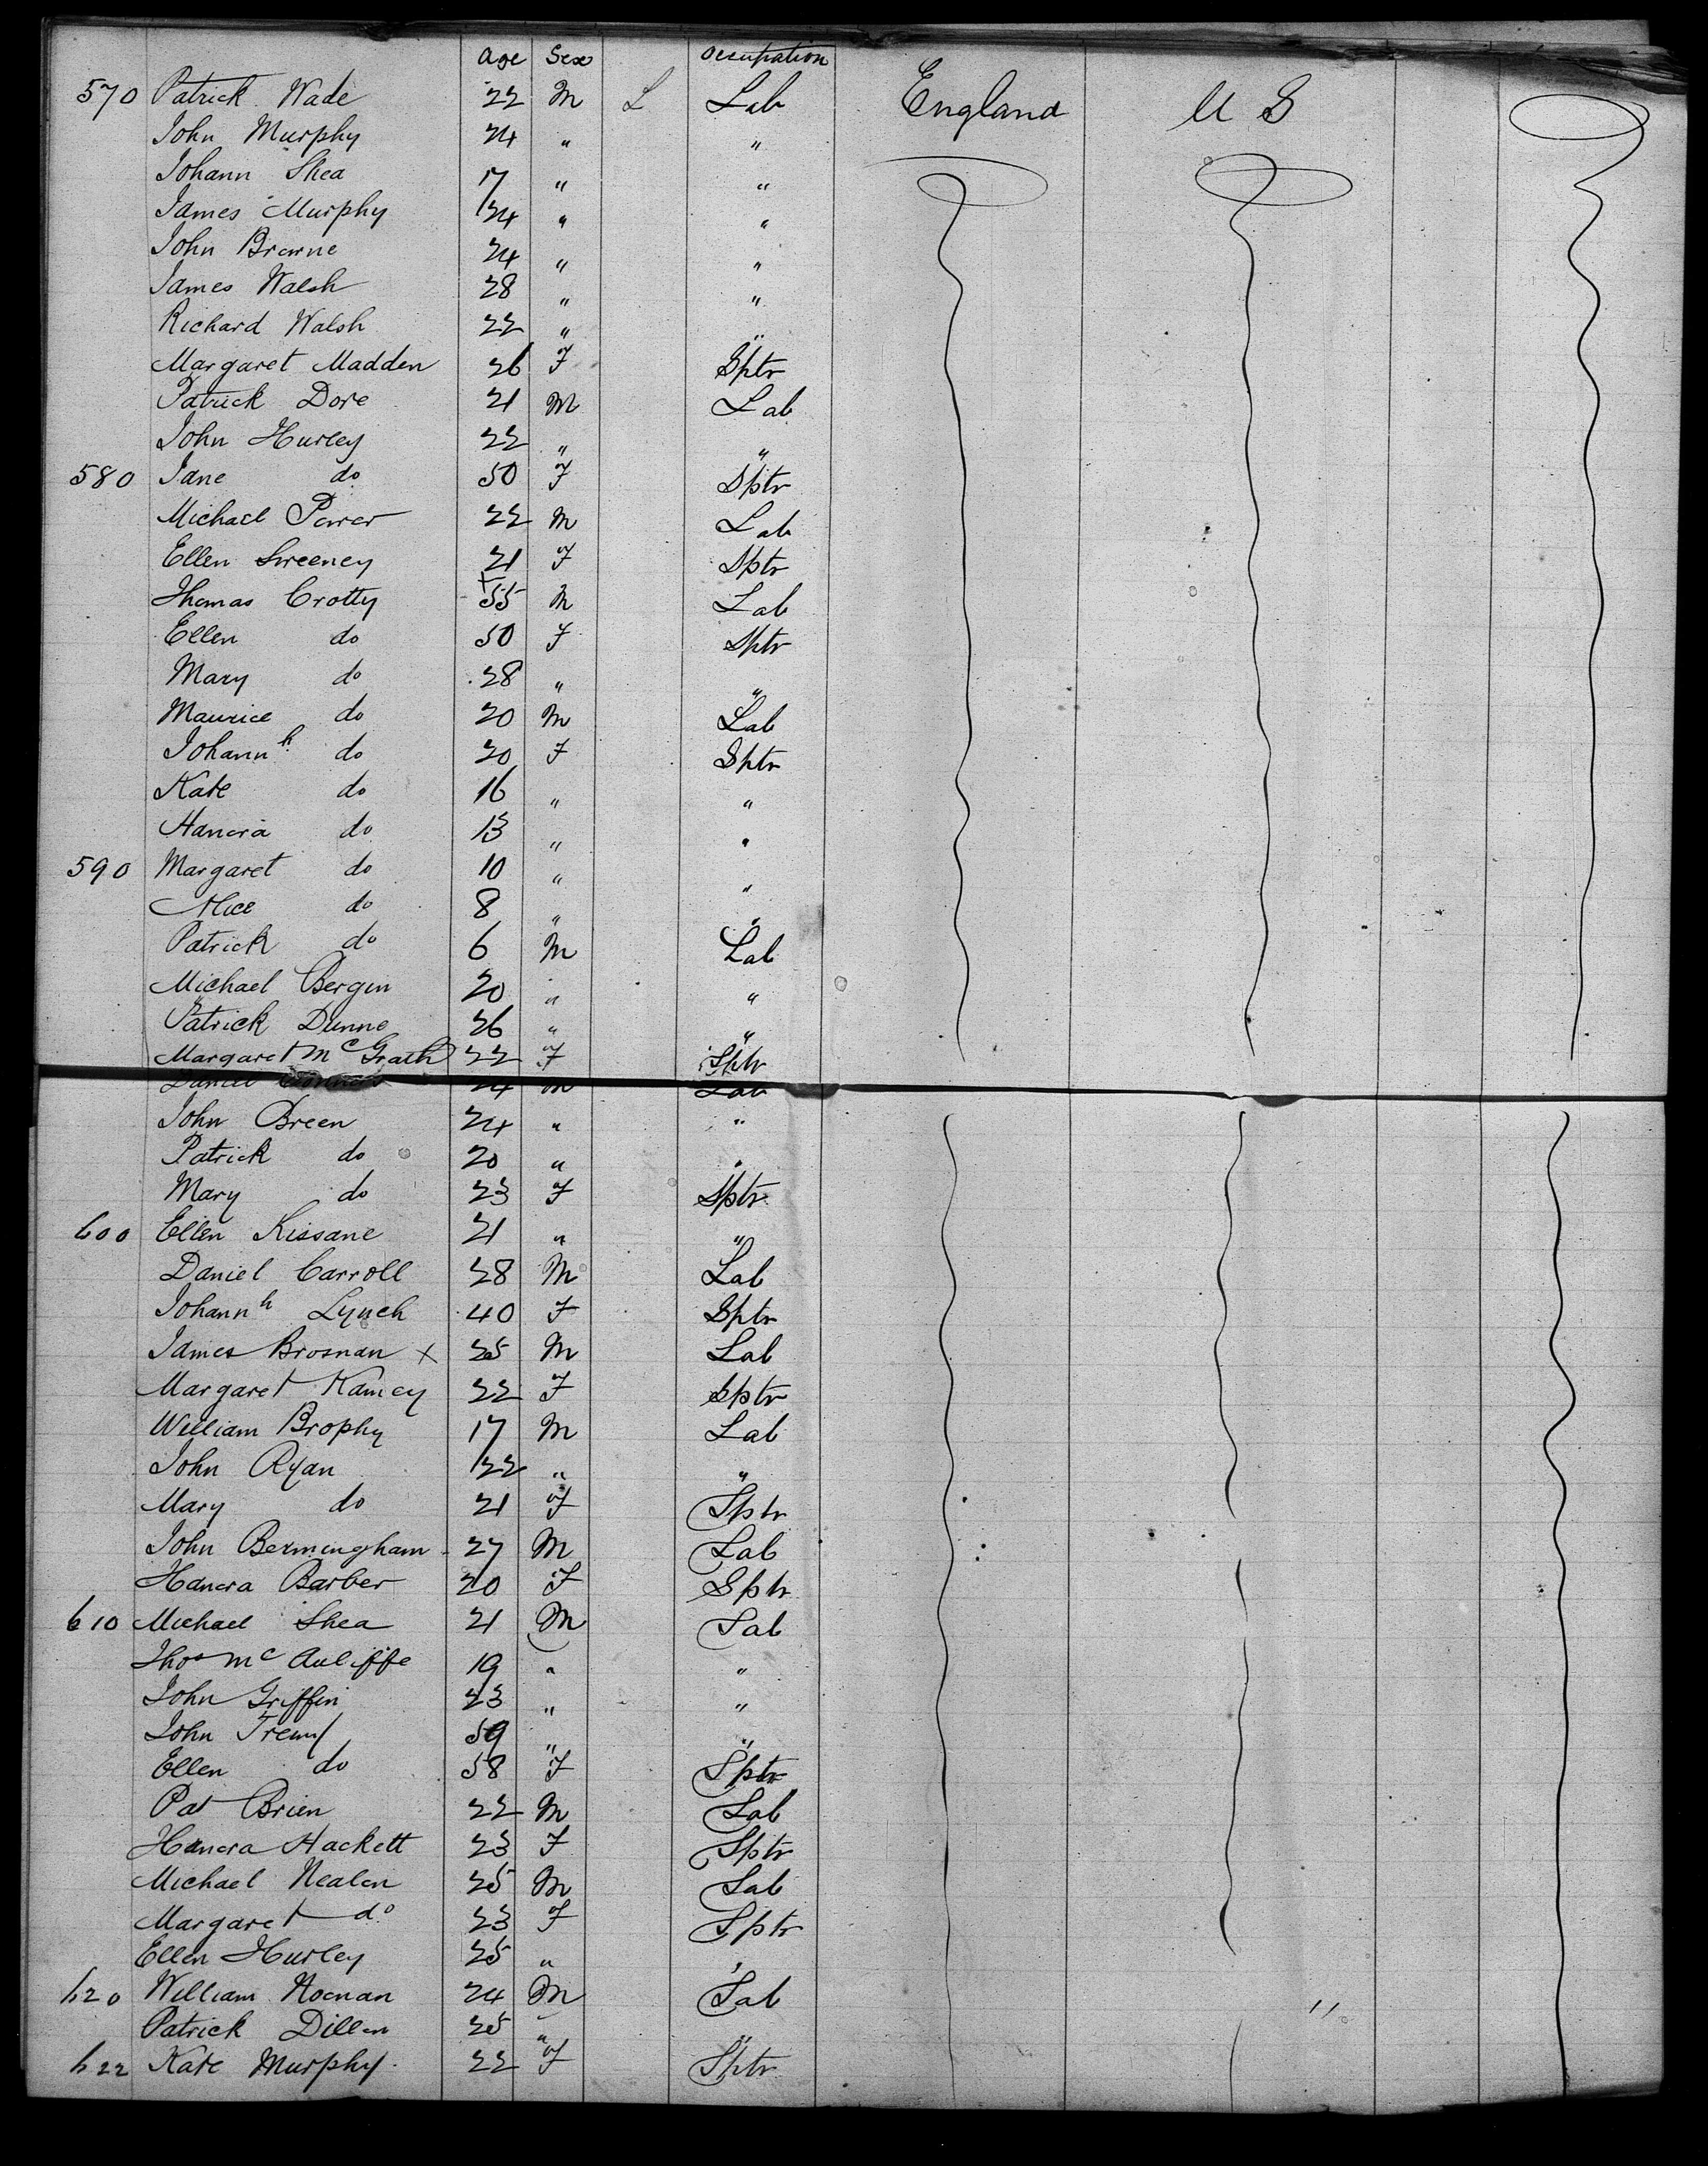 Age Sex Occupation
570 Patrick Wade 22 M L Lab England U S
John Murphy 24 " "
Johann Shea 17 " "
James Murphy 24 " "
John Browne 24 " "
James Walsh 28 " "
Richard Walsh 22 " "
Margaret Madden 26 F Sptr
Patrick Dore 21 M Lab
John Hurley 22 " "
580 Jane do 50 F Sptr
Michael Power 22 M Lab
Ellen Sweeney 21 F Sptr
Thomas Crotty 55 M Lab
Ellen do 50 F Sptr
Mary do 28 " "
Maurice do 20 M Lab
Johannh do 20 F Sptr
Kate do 16 " "
Hanora do 13 " "
590 Margaret do 10 " "
Alice do 8 " "
Patrick do 6 M Lab
Michael Bergin 20 " "
Patrick Dunne 26 " "
Margaret McGrath 22 F Sptr
Daniel 24 M Lab
John Breen 24 " "
Patrick do 20 " "
Mary do 23 F Sptr
600 Ellen Kissane 21 " "
Daniel Carroll 28 M Lab
Johannh Lynch 40 F Sptr
James Brosnan x 25 M Lab
Margaret 22 F Sptr
William Brophy 17 M Lab
John Ryan 22 " "
Mary do 21 F Sptr
John Bermingham 27 M Lab
Hanora Barber 20 F Sptr
610 Michael Shea 21 M Lab
Thos McAuliffe 19 " "
John Griffin 23 " "
John 59 " "
Ellen do 58 F Sptr
Pat Brien 22 M Lab
Hanora Hackett 23 F Sptr
Michael Nealon 25 M Lab
Margaret do 23 F Sptr
Ellen Hurley 25 " "
620 William Noonan 24 M Lab "
Patrick Dillon 25 " "
622 Kate Murphy 22 F Sptr